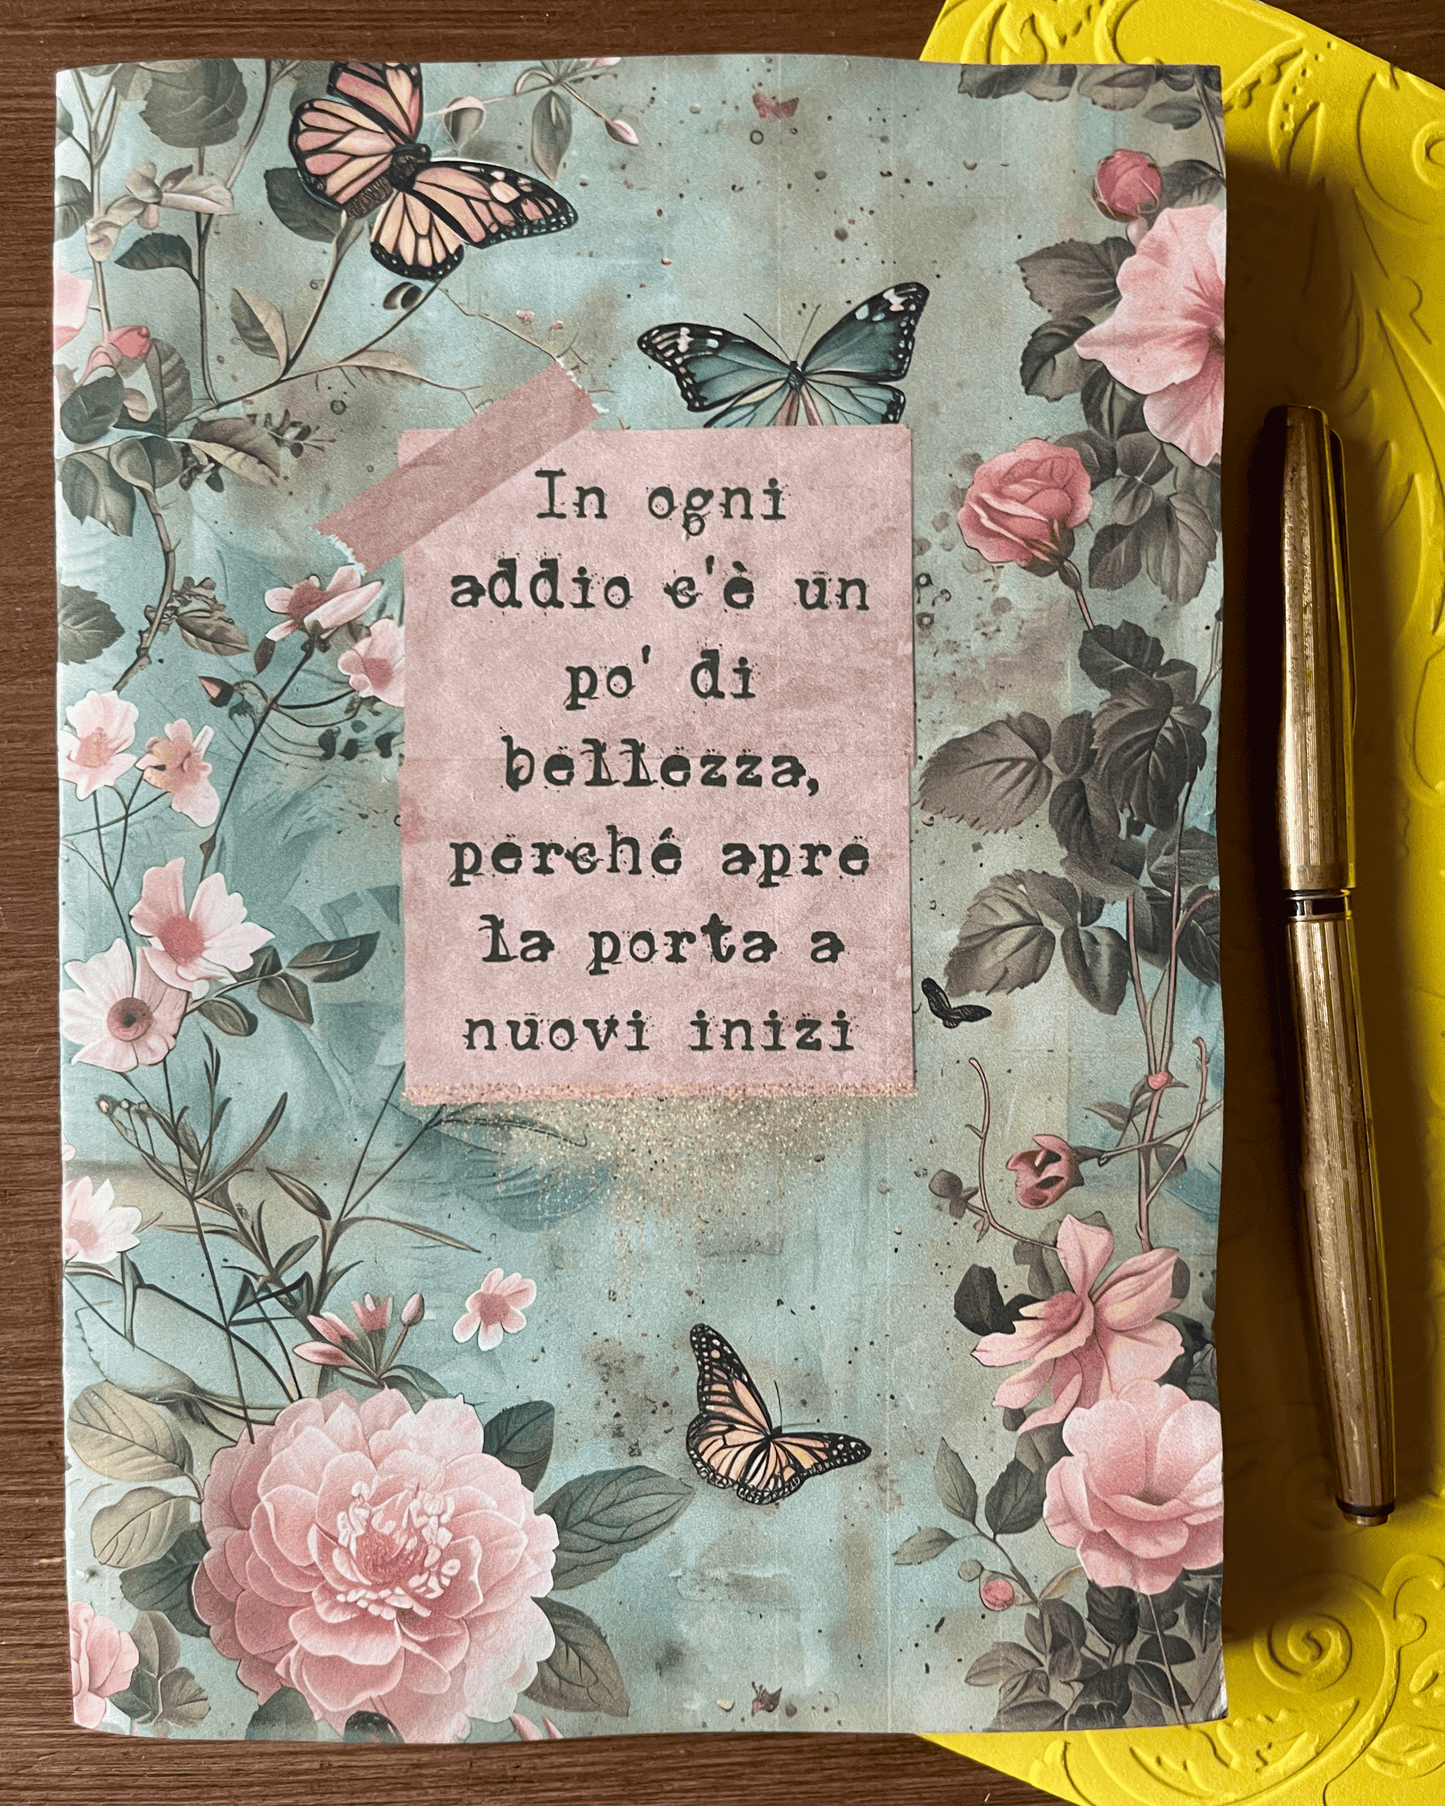 In ogni
addio c'è un
po' di
bellezza,
perché apre
la porta a
nuovi inizi